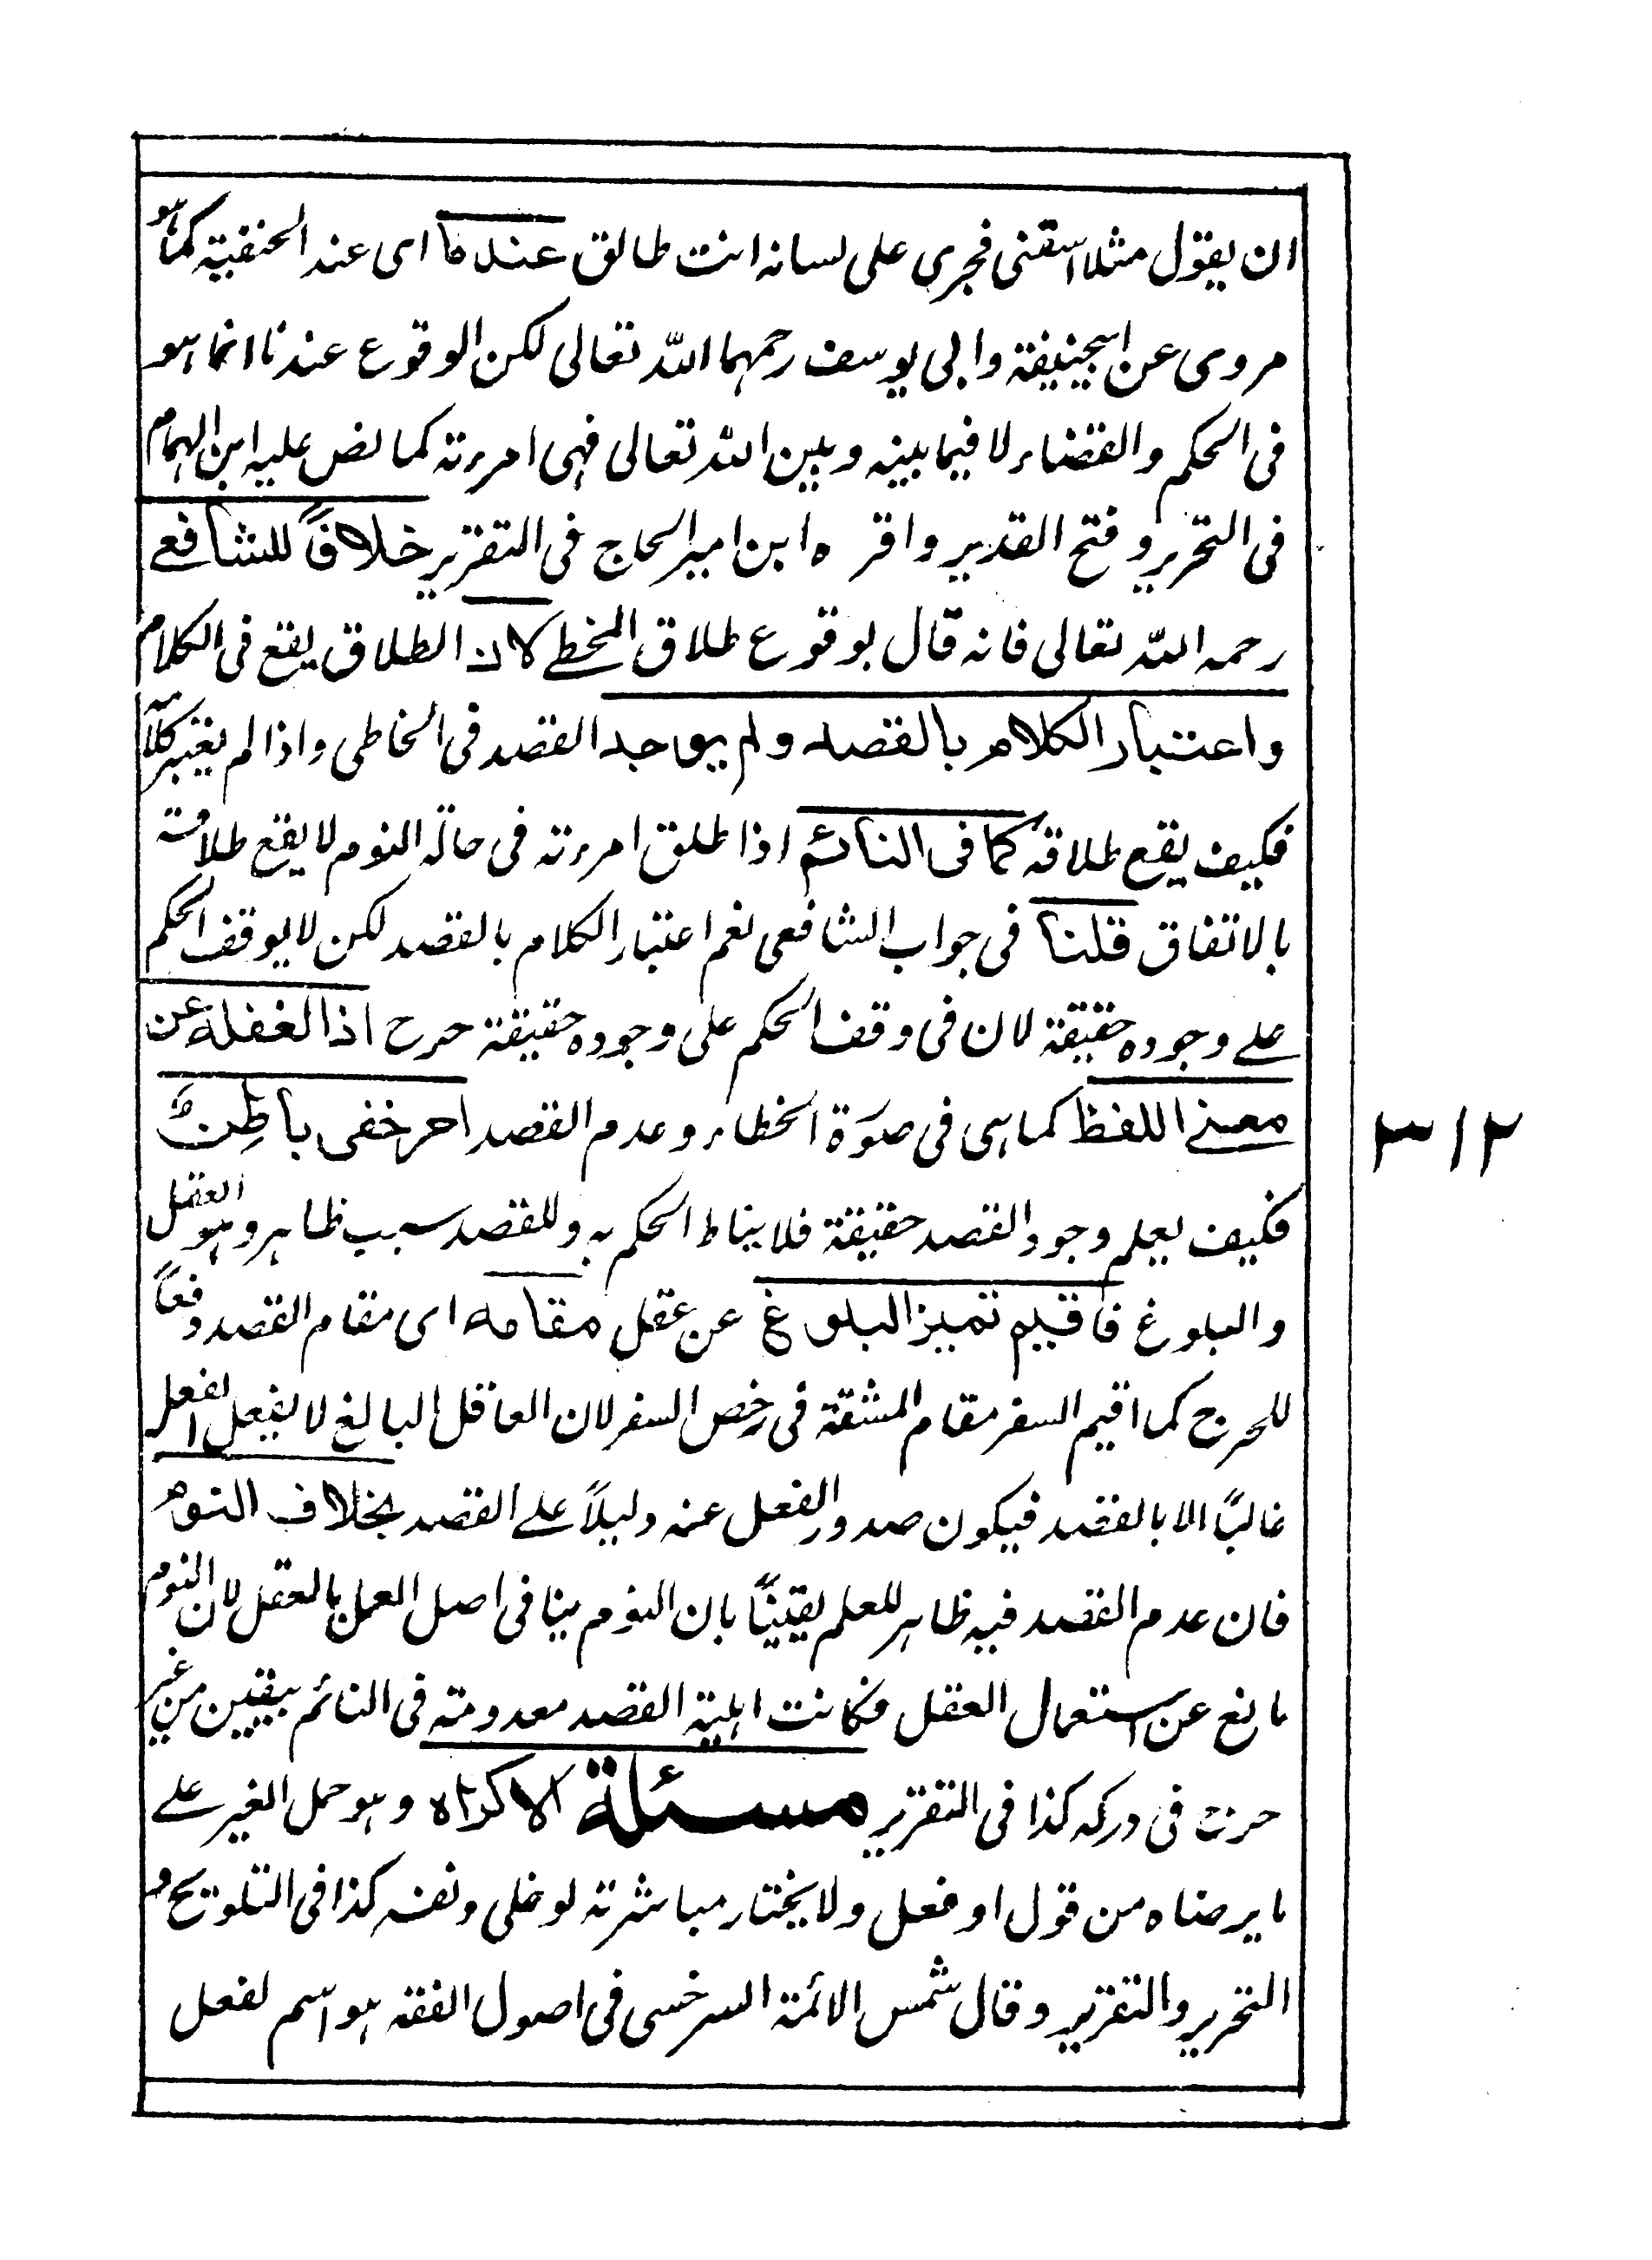 ان يقول مثلا اسقنى فجرى على لسانه انت طالق عندنا اى عند الحنفية كما هو
مروى عن ابيحنيفة وابى يوسف رحمهما الله تعالى لكن الوقوع عندنا انما هو
فى الحكم والقضاء لا فيما بينه وبين الله تعالى فهى امرءته كما نص عليه ابن الهمام
فى التحرير و فتح القدير واقره ابن امير الحاج فى التقرير خلافاً للشافعے
رحمه الله تعالى فانه قال بوقوع طلاق المخطے لان الطلاق يقع فى الكلام
واعتبار الكلام بالقصد ولم يوجد القصد فى الخاطى واذا لم يعتبر كلامه
فكيف يقع طلاقه كما فى النائم اذا طلق امرءته فى حالة النوم لا يقع طلاقه
بالاتفاق قلنا فى جواب الشافعى نعم اعتبار الكلام بالقصد لكن لا يوقف الحكم
علے وجوده حقيقة لان فى وقف الحكم على وجوده حقيقة حرح اذ الغفلة عن
معنے اللفظ كما هى فى صورة الخطاء وعدم القصد امر خفى باطن
فكيف يعلم وجود القصد حقيقة فلا يناط الحكم به وللقصد سبب ظاهر وهو العقل
والبلوغ فاقيم تميز البلوغ عن عقل مقامه اى مقام القصد دفعاً
للحرج كما اقيم السفر مقام المشقة فى رخص السفر لان العاقل البالغ لا يفعل الفعل
غالبًا الا بالقصد فيكون صدور الفعل عنه دليلاً علے القصد بخلاف النوم
فان عدم القصد فيه ظاهر للعلم يقينيًا بان النوم ينافى اصل العمل بالعقل لان النوم
مانع عن استعمال العقل فكانت اهلية القصد معدومة فى النائم بيقين من غير
حرج فى دركه كذا فى التقرير مسئلة الاكراه وهو حمل الغير علے
ما يرضاه من قول او فعل ولا يختار مباشرته لو خلى ونفسه كذا فى التلويح و
التحرير والتقرير وقال شمس الائمة السرخسى فى اصول الفقه هو اسم لفعل
٣١٢